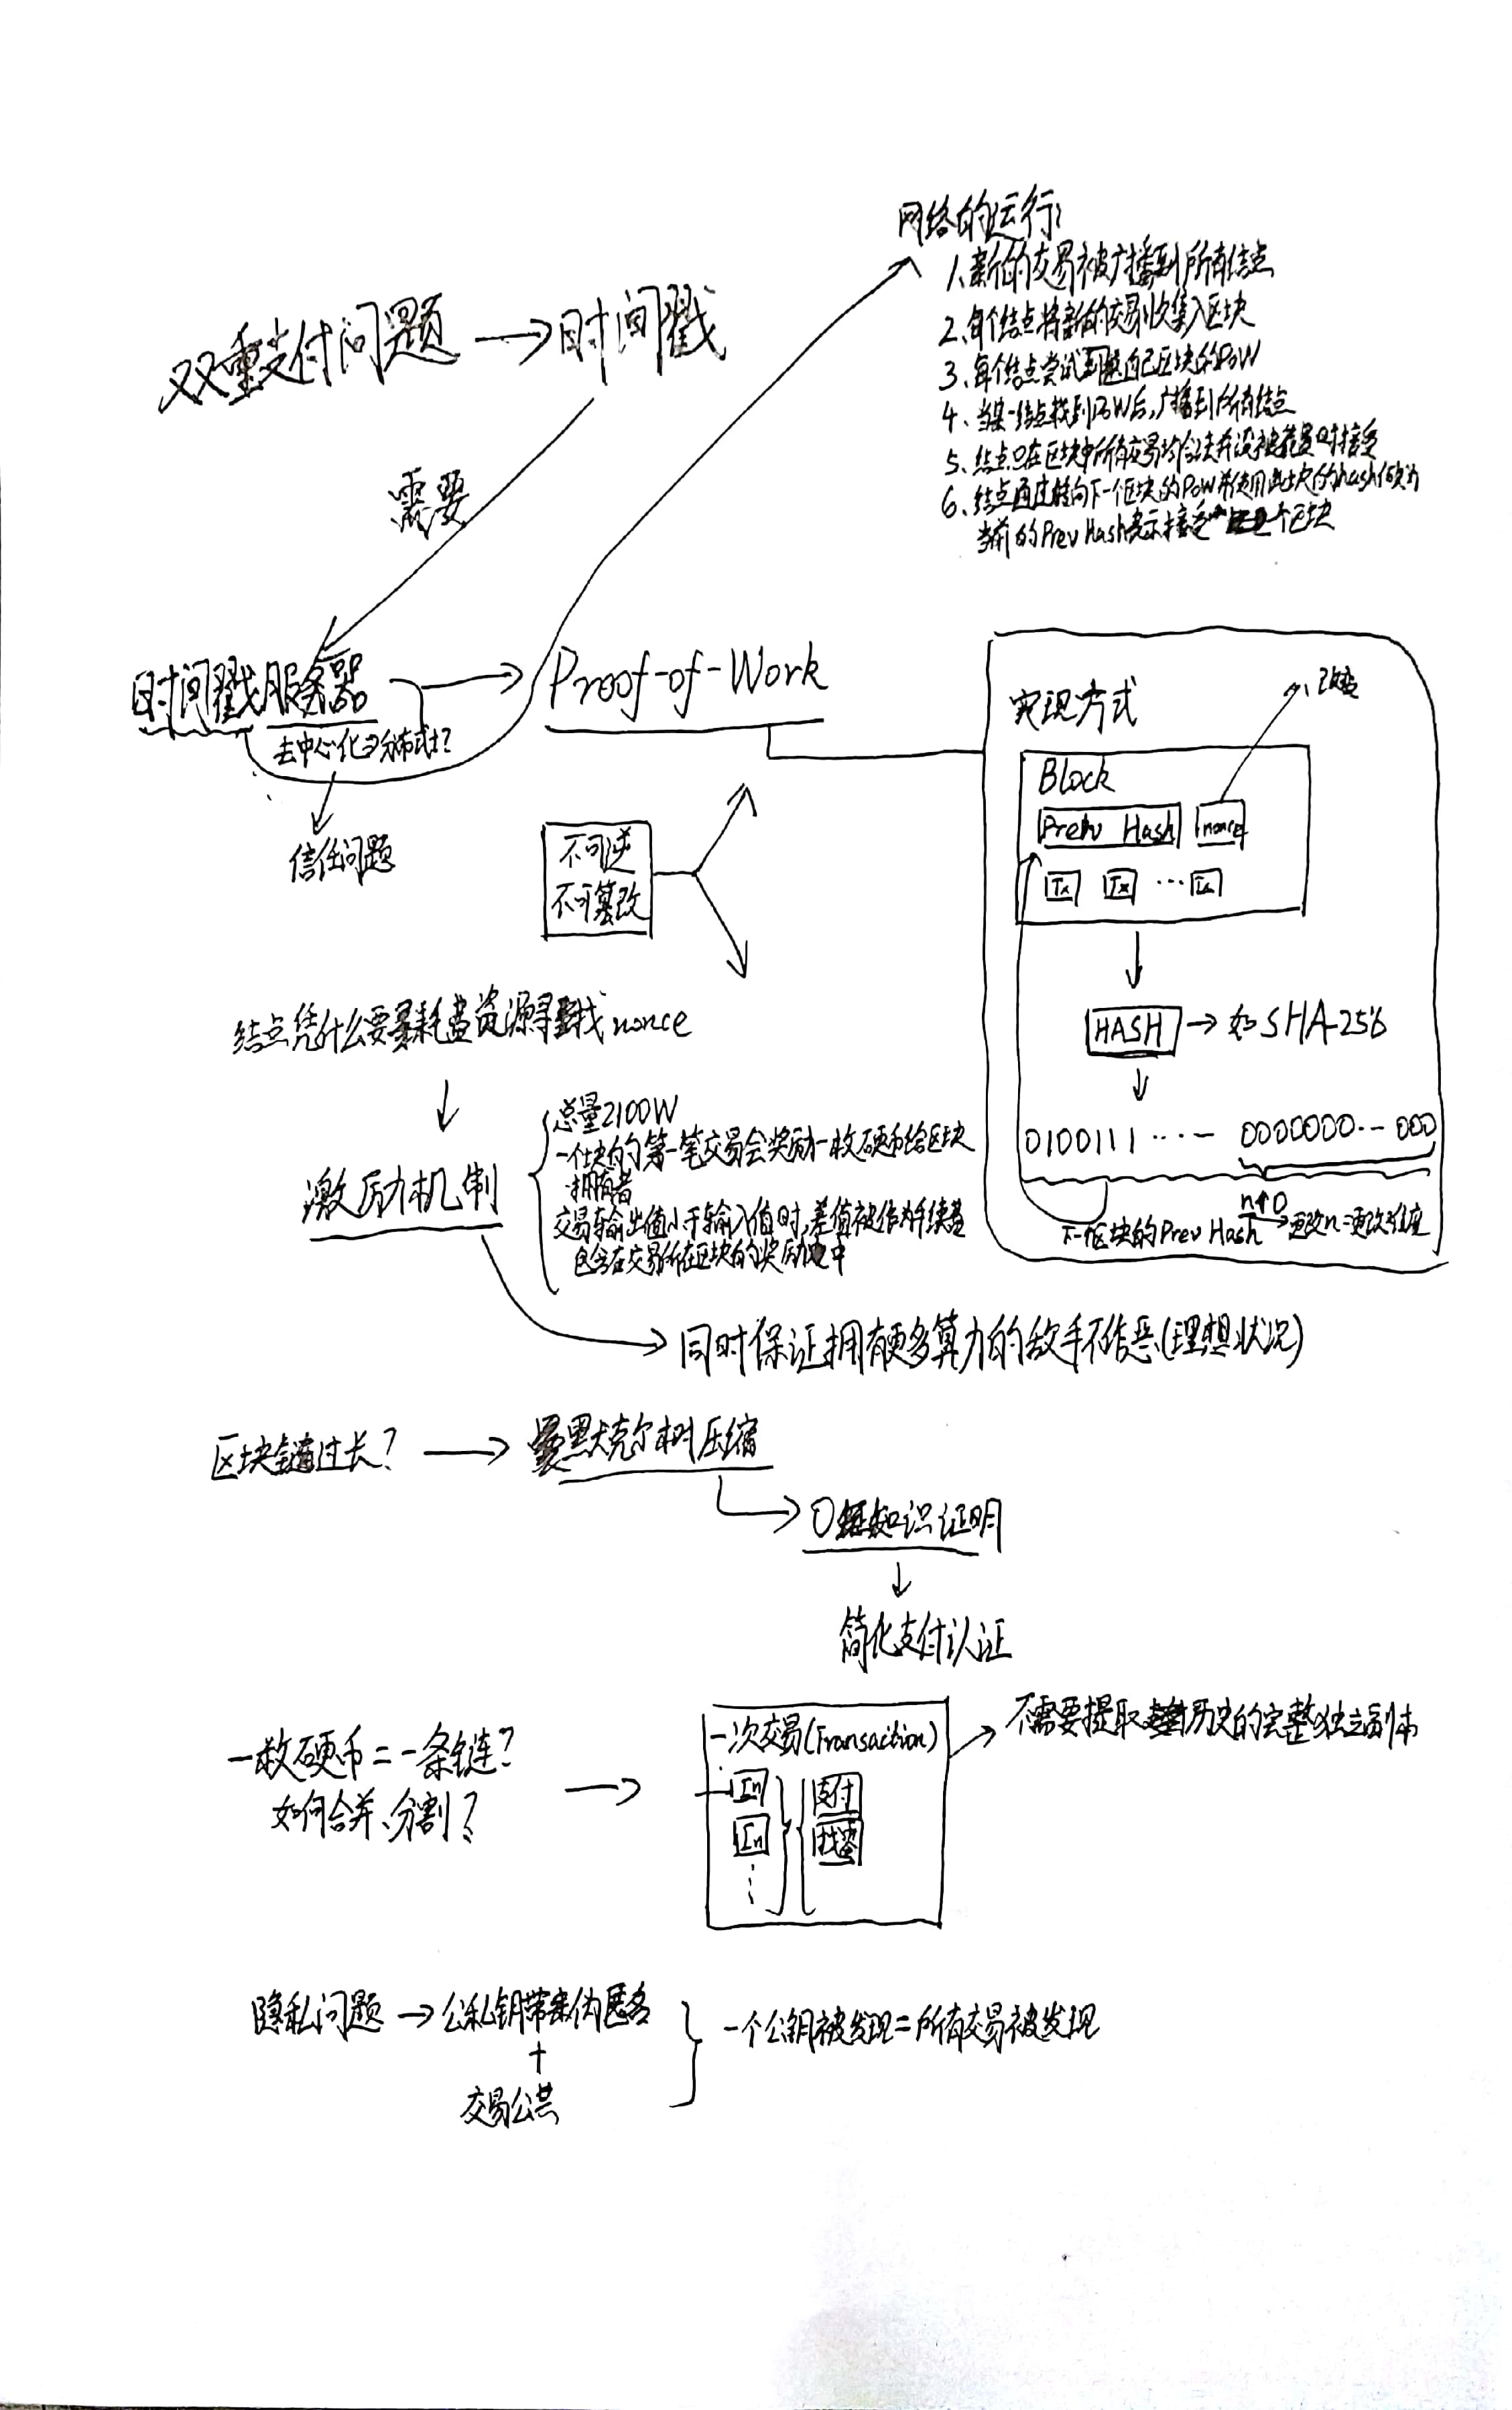 网络的运行:
1、新的交易被广播到所有结点
2、每个结点将新的交易收集入区块
3、每个结点尝试自己区块的PoW
4、当某一结点找到PoW后,广播到所有结点
5、结点只在区块中所有交易均合法并没被花费时接受
6、结点通过转向下一个区块的PoW并使用此块的hash做为
当前的Prev Hash表示接受个区块
双重支付问题 → 时间戳
需要
时间戳服务器 → Proof-of-Work
去中心化⇒分布式?
信任问题
不可逆
不可篡改
实现方式
改变
Block
Prev Hash nonce
Tx Tx … Tx
HASH → 如SHA-256
0100111 ···— 0000000·-- 000
n个0
下一区块的Prev Hash 更改n=更改难度
结点凭什么要耗费资源寻找nonce
激励机制
总量2100W
一个块的第一笔交易会奖励一枚硬币给区块
拥有者
交易输出值小于输入值时,差值被作为手续费
包含在交易所在区块的奖励中
同时保证拥有更多算力的敌手不作恶(理想状况)
区块链过长? → 默克尔树压缩
0知识证明
简化支付认证
一枚硬币=一条链?
如何合并、分割?
一次交易(Transaction)
In 支付
In 找零
不需要提取历史的完整独立副本
隐私问题 → 公私钥带来伪匿名
+
交易公共
一个公钥被发现=所有交易被发现